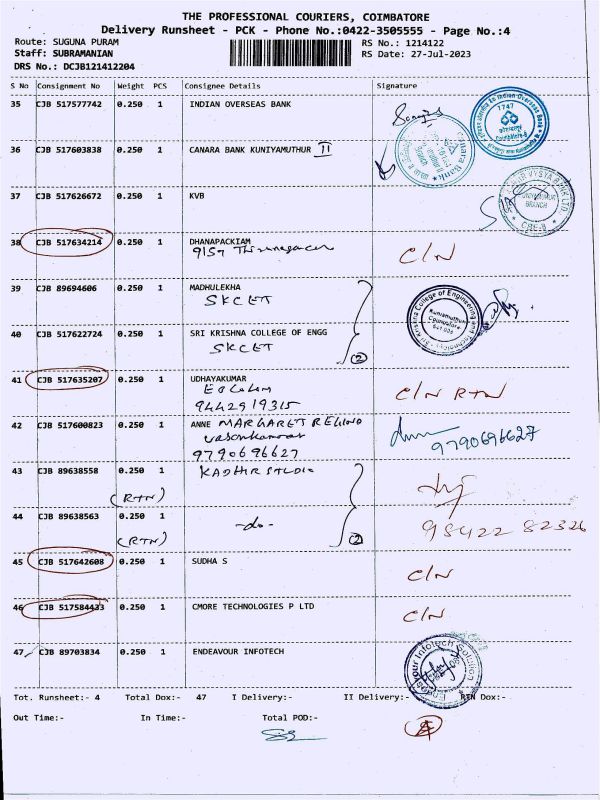 THE PROFESSIONAL COURIERS, COIMBATORE
Delivery Runsheet - PCK - Phone No.:0422-3505555 - Page No.:4
Route: SUGUNA PURAM
RS No.: 1214122
Staff: SUBRAMANIAN
RS Date: 27-Jul-2023
DRS No.: DCJB121412204
S No Consignment No Weight PCS Consignee Details Signature
35 CJB 517577742 0.250 1 INDIAN OVERSEAS BANK
1747
36 CJB 517603838 0.250 1 CANARA BANK KUNIYAMUTHUR II
Canara Bank
37 CJB 517626672 0.250 1 KVB
BRANCH
CBE-8
38 CJB 517634214 0.250 1 DHANAPACKIAM
C/N
39 CJB 89694606 0.250 1 MADHULEKHA
SKCET
Sri Krishna College of Engineering and Technology
Kuniamuthur
Coimbatore
641 008
40 CJB 517622724 0.250 1 SRI KRISHNA COLLEGE OF ENGG
SKCET
2
41 CJB 517635207 0.250 1 UDHAYAKUMAR
9442919315
C/N RTN
42 CJB 517600823 0.250 1 ANNE MARGARET
9790696627
9790696627
43 CJB 89638558 0.250 1 KADHIR STUDIO
(RTN)
44 CJB 89638563 0.250 1 -do-
(RTN)
2
98422 82326
45 CJB 517642608 0.250 1 SUDHA S
C/N
46 CJB 517584433 0.250 1 CMORE TECHNOLOGIES P LTD
C/N
47 CJB 89703834 0.250 1 ENDEAVOUR INFOTECH
Endeavour Infotech Solution
Tot. Runsheet:- 4 Total Dox:- 47 I Delivery:- II Delivery:- RTN Dox:-
Out Time:- In Time:- Total POD:-